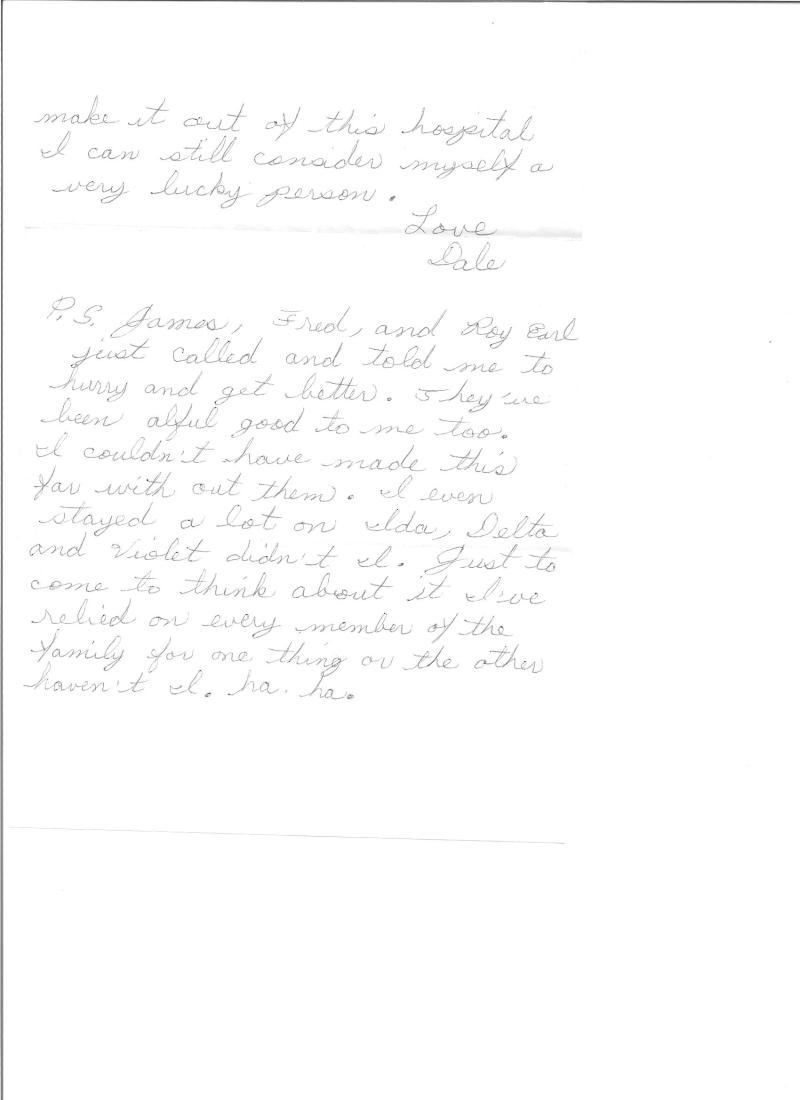 make it out of this hospital
I can still consider myself a
very lucky person.
Love
Dale
P.S. James, Fred, and Roy Earl
just called and told me to
hurry and get better. They've
been alful good to me too.
I couldn't have made this
far with out them. I even
stayed a lot on Ilda, Delta
and Violet didn't I. Just to
come to think about it I've
relied on every member of the
family for one thing or the other
haven't I. ha. ha.